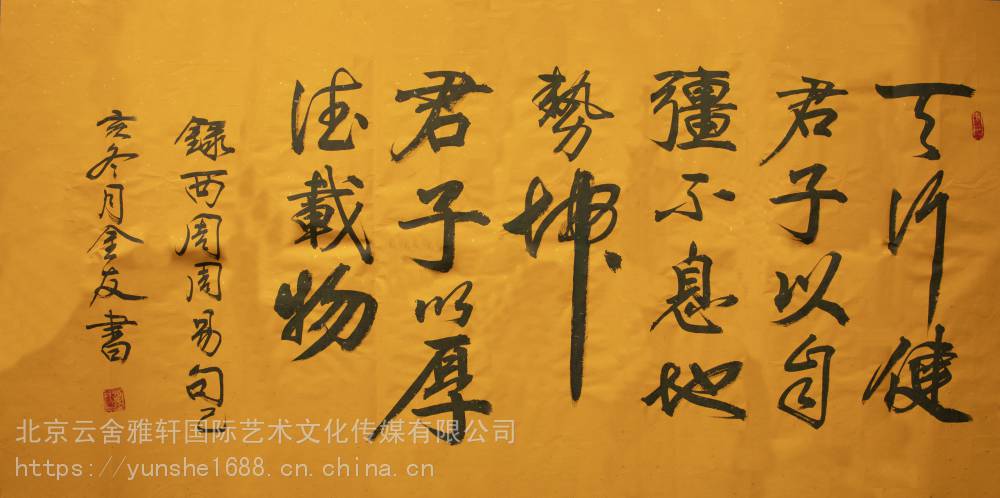 天行健
君子以自
彊不息地
勢坤
君子以厚
德載物
録西周周易句己
亥冬月金友書
北京云舍雅轩国际艺术文化传媒有限公司
https://yunshe1688.cn.china.cn